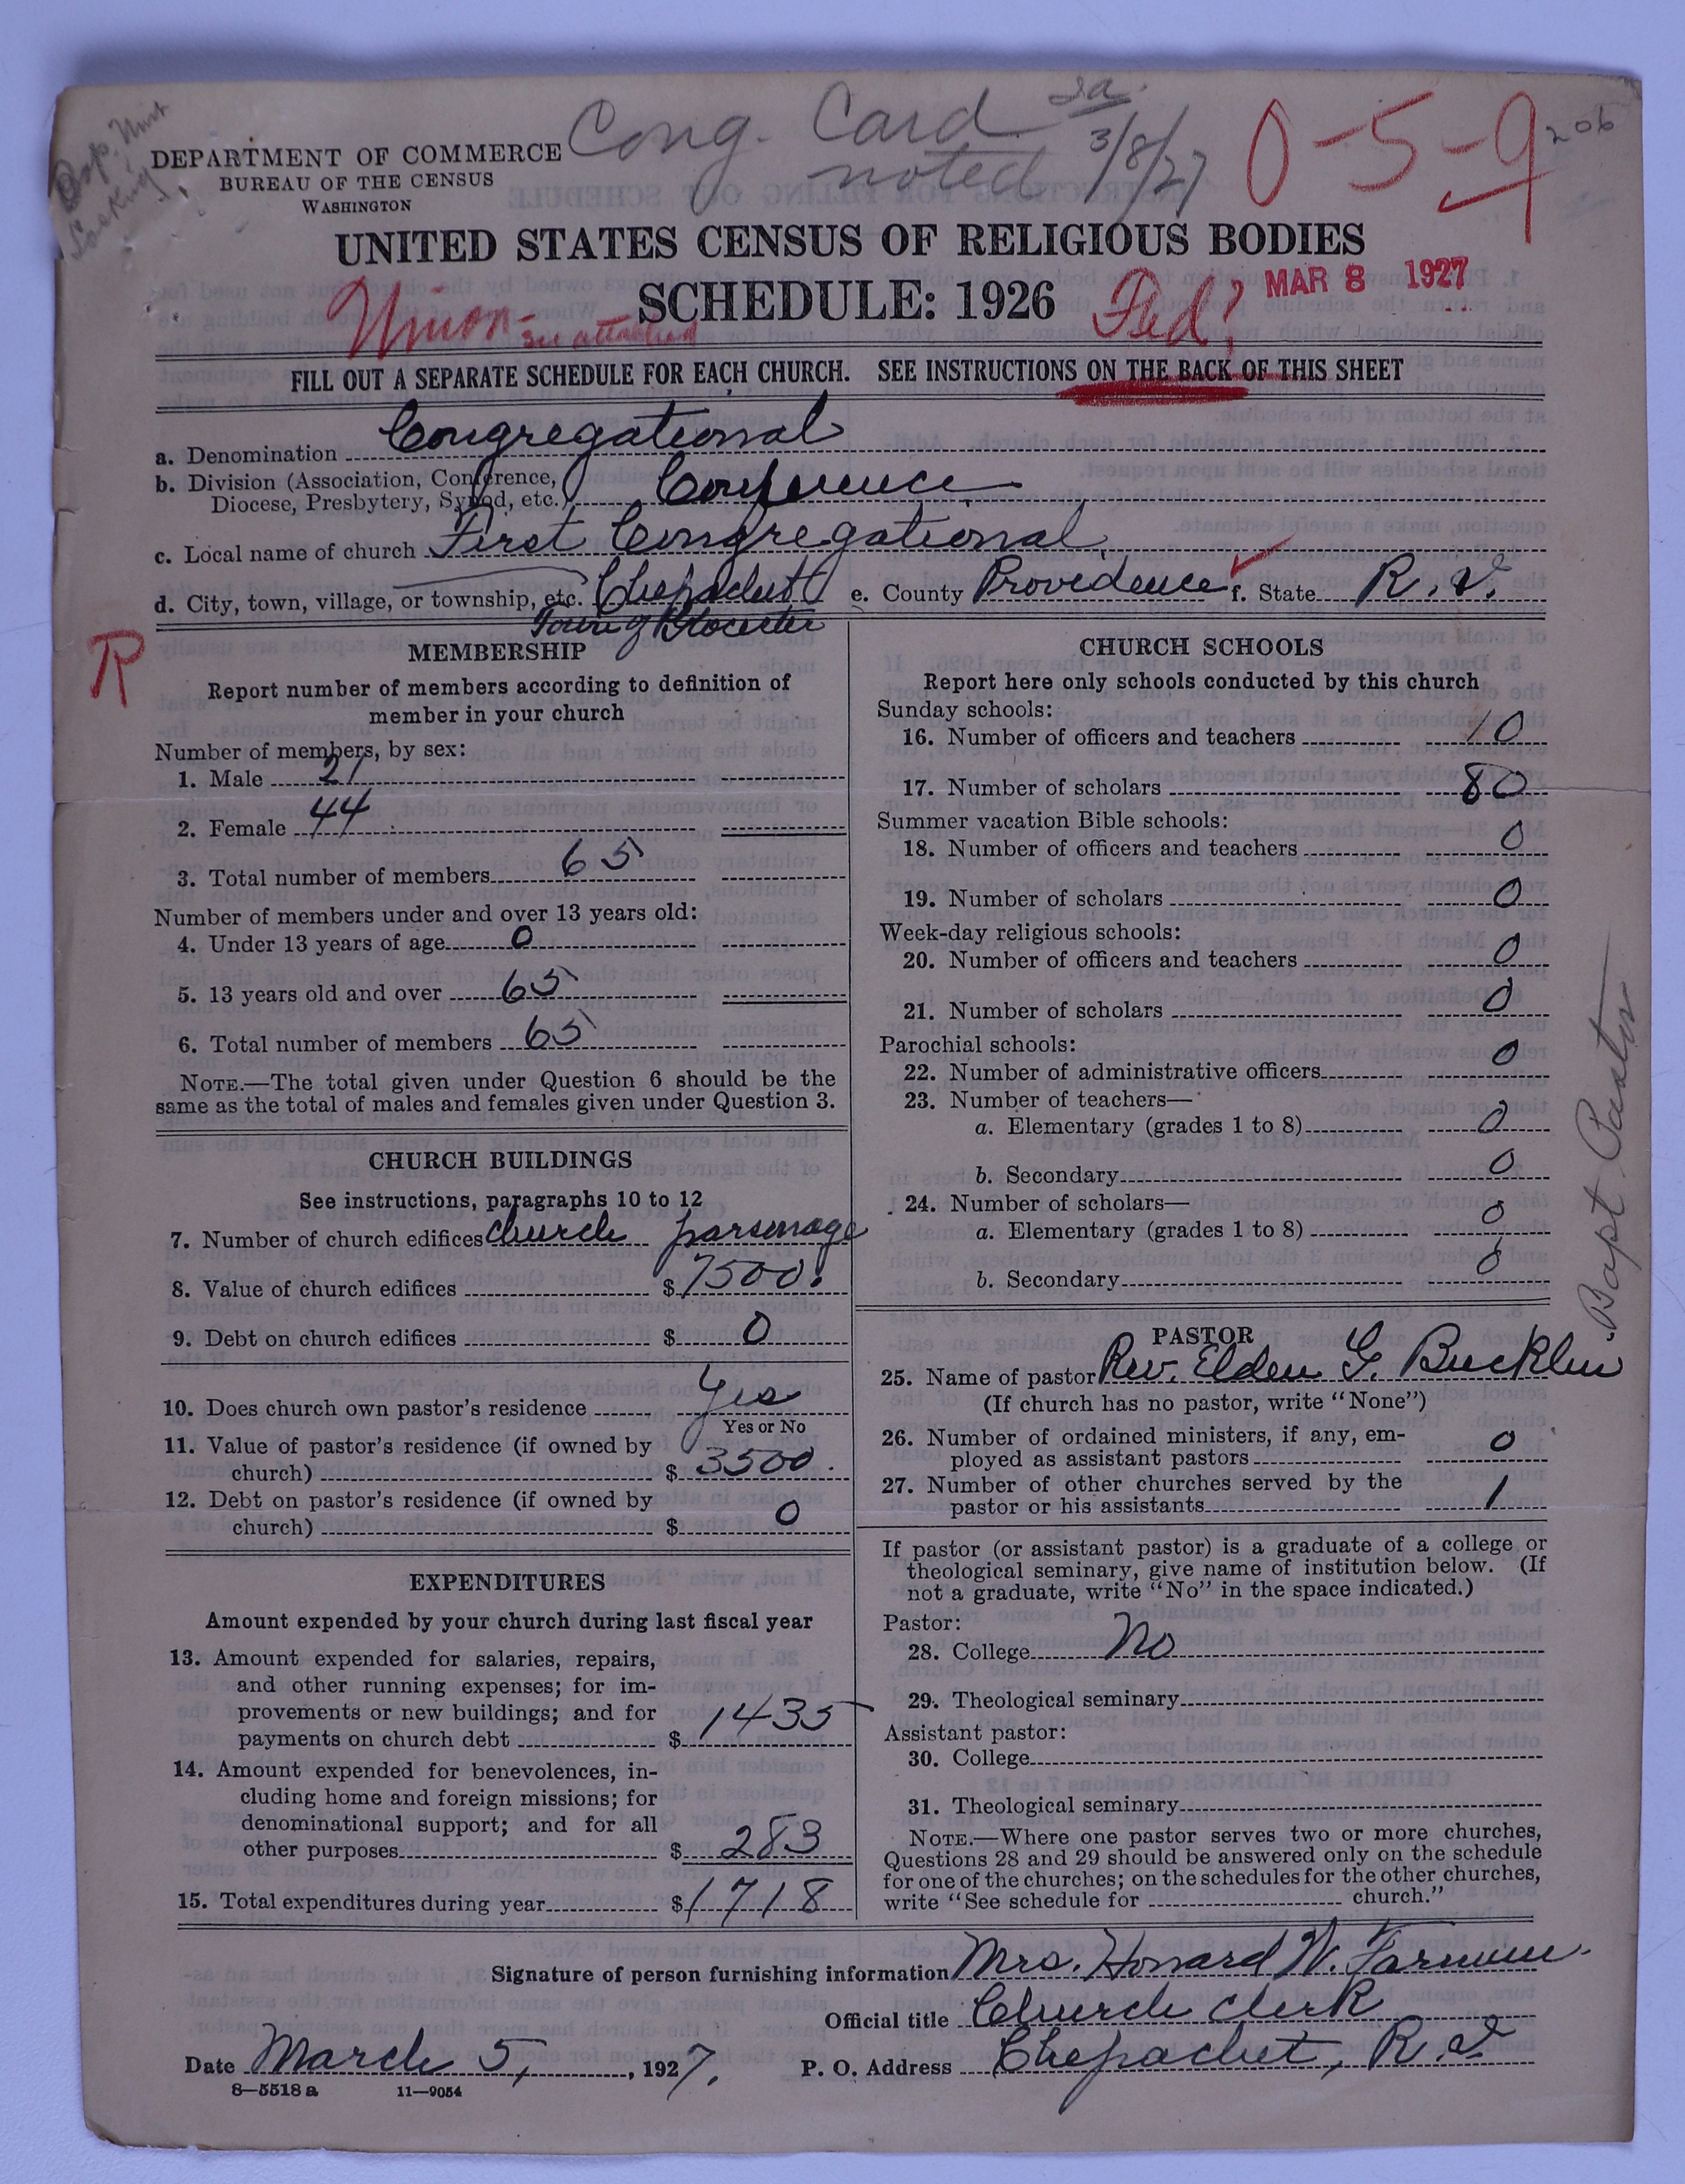 Cong. Card
noted 3/8/27
0-5-9
206
DEPARTMENT OF COMMERCE
BUREAU OF THE CENSUS
WASHINGTON
UNITED STATES CENSUS OF RELIGIOUS BODIES
SCHEDULE: 1926
Union - see attached
Fed?
MAR 8 1927
FILL OUT A SEPARATE SCHEDULE FOR EACH CHURCH. SEE INSTRUCTIONS ON THE BACK OF THIS SHEET
a. Denomination Congregational
b. Division (Association, Conference,
Diocese, Presbytery, Synod, etc.) Conference
c. Local name of church First Congregational
d. City, town, village, or township, etc. Chepachet e. County Providence f. State R.I.
Town of Glocester
R
MEMBERSHIP
Report number of members according to definition of
member in your church
Number of members, by sex:
1. Male 21
2. Female 44
3. Total number of members 65
Number of members under and over 13 years old:
4. Under 13 years of age 0
5. 13 years old and over 65
6. Total number of members 65
NOTE.—The total given under Question 6 should be the
same as the total of males and females given under Question 3.
CHURCH BUILDINGS
See instructions, paragraphs 10 to 12
7. Number of church edifices church parsonage
8. Value of church edifices $7500.
9. Debt on church edifices $ 0
10. Does church own pastor's residence Yes
Yes or No
11. Value of pastor's residence (if owned by
church) $ 3500.
12. Debt on pastor's residence (if owned by
church) $ 0
EXPENDITURES
Amount expended by your church during last fiscal year
13. Amount expended for salaries, repairs,
and other running expenses; for im-
provements or new buildings; and for
payments on church debt $ 1435
14. Amount expended for benevolences, in-
cluding home and foreign missions; for
denominational support; and for all
other purposes $ 283
15. Total expenditures during year $1718
CHURCH SCHOOLS
Report here only schools conducted by this church
Sunday schools:
16. Number of officers and teachers 10
17. Number of scholars 80
Summer vacation Bible schools:
18. Number of officers and teachers 0
19. Number of scholars 0
Week-day religious schools:
20. Number of officers and teachers 0
21. Number of scholars 0
Parochial schools:
22. Number of administrative officers 0
23. Number of teachers—
a. Elementary (grades 1 to 8) 0
b. Secondary 0
24. Number of scholars—
a. Elementary (grades 1 to 8) 0
b. Secondary 0
PASTOR
25. Name of pastor Rev. Elden G. Bucklin
(If church has no pastor, write "None")
26. Number of ordained ministers, if any, em-
ployed as assistant pastors 0
27. Number of other churches served by the
pastor or his assistants 1
If pastor (or assistant pastor) is a graduate of a college or
theological seminary, give name of institution below. (If
not a graduate, write "No" in the space indicated.)
Pastor:
28. College No
29. Theological seminary
Assistant pastor:
30. College
31. Theological seminary
NOTE.—Where one pastor serves two or more churches,
Questions 28 and 29 should be answered only on the schedule
for one of the churches; on the schedules for the other churches,
write "See schedule for church."
Bapt Pastor
Signature of person furnishing information Mrs. Howard W. Farnum
Official title Church Clerk
Date March 5, 1927. P. O. Address Chepachet, R.I.
8—5518a 11—9054